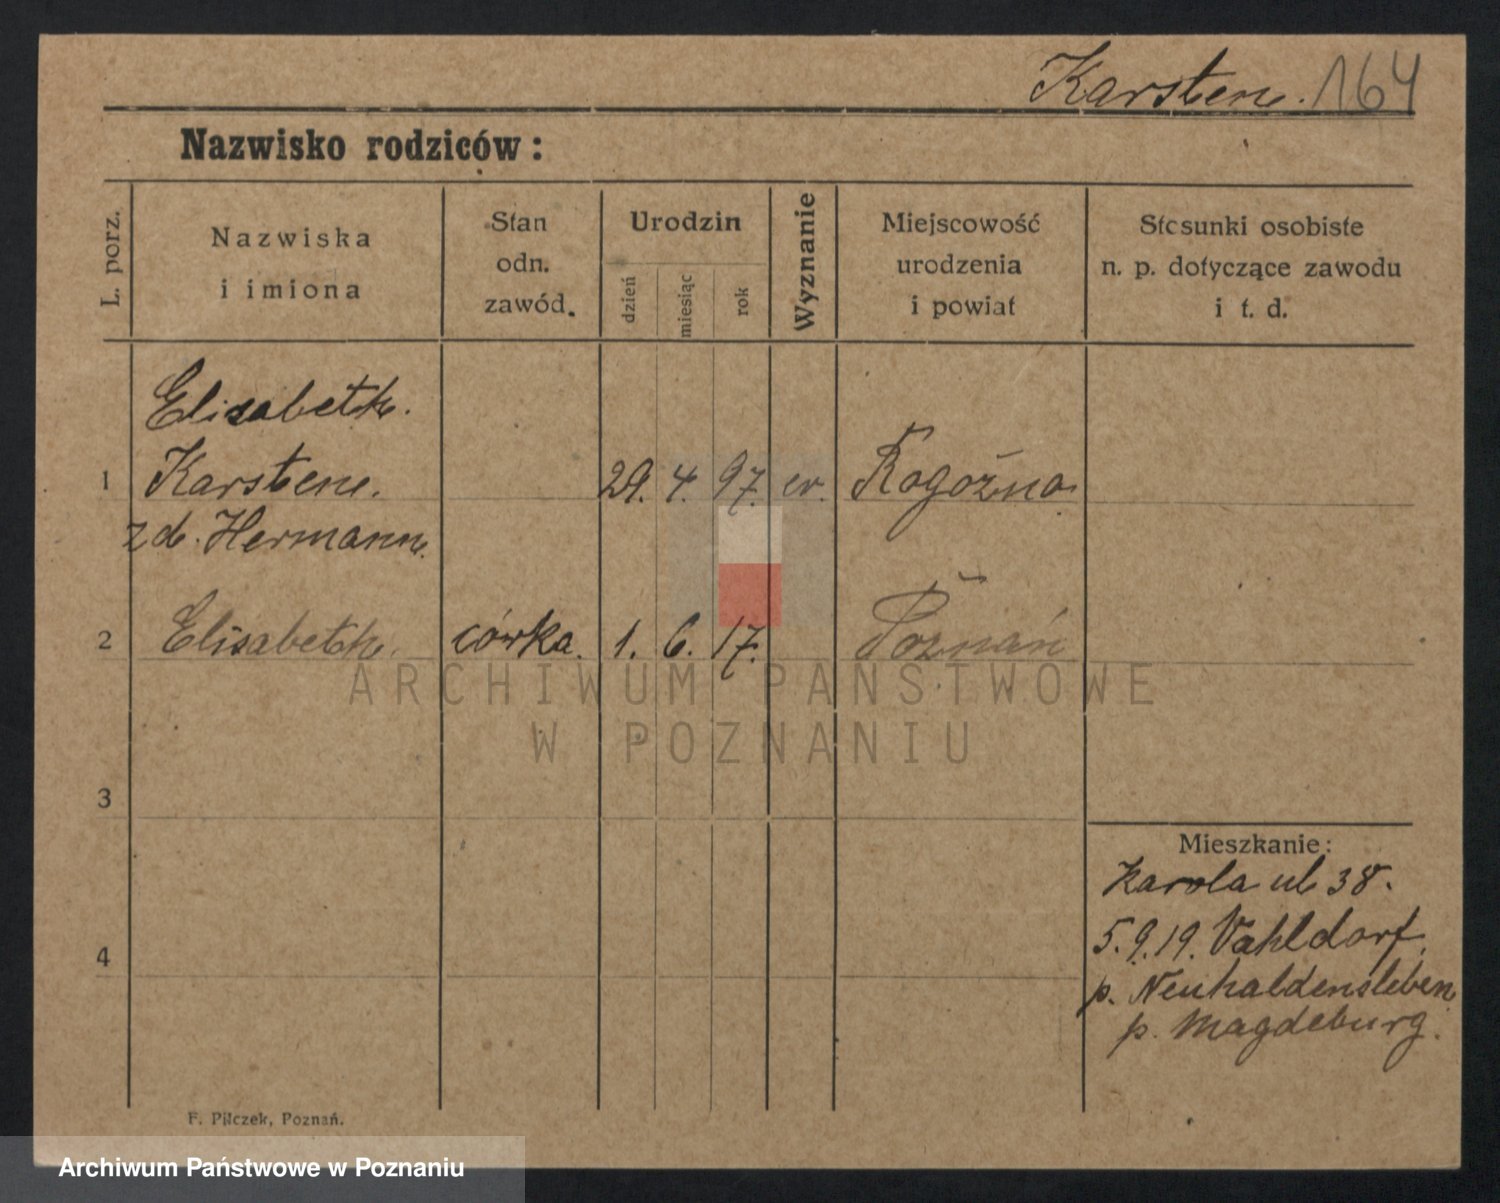 Karsten. 164
Nazwisko rodziców:
L. porz.
Nazwiska
i imiona
Stan
odn.
zawód.
Urodzin
dzień
miesiąc
rok
Wyznanie
Miejscowość
urodzenia
i powiat
Stosunki osobiste
n. p. dotyczące zawodu
i t. d.
Elisabeth.
1 Karsten. 29. 4. 97. ev. Rogoźno
z d. Hermann.
2 Elisabeth. córka. 1. 6. 17. Poznań
ARCHIWUM PAŃSTWOWE
W POZNANIU
3
Mieszkanie:
Karola ul 38.
5.9.19. Vahldorf
4
p. Neuhaldensleben
p. Magdeburg.
F. Pilczek, Poznań.
Archiwum Państwowe w Poznaniu